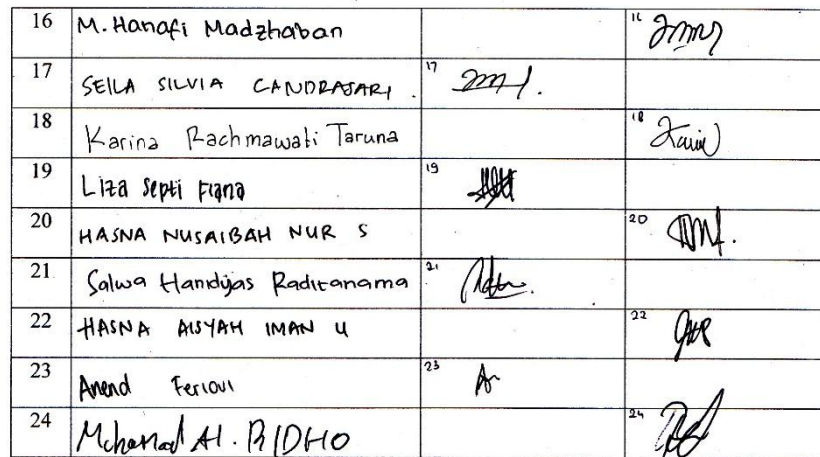 16 M. Hanafi Madzhaban 16
17 SEILA SILVIA CANDRASARI. 17
18 Karina Rachmawati Taruna 18
19 Liza Septi Fiana 19
20 HASNA NUSAIBAH NUR S 20
21 Salwa Handyas Raditanama 21
22 HASNA AISYAH IMAN U 22
23 Anend Feriovi 23
24 Al. RIDHO 24